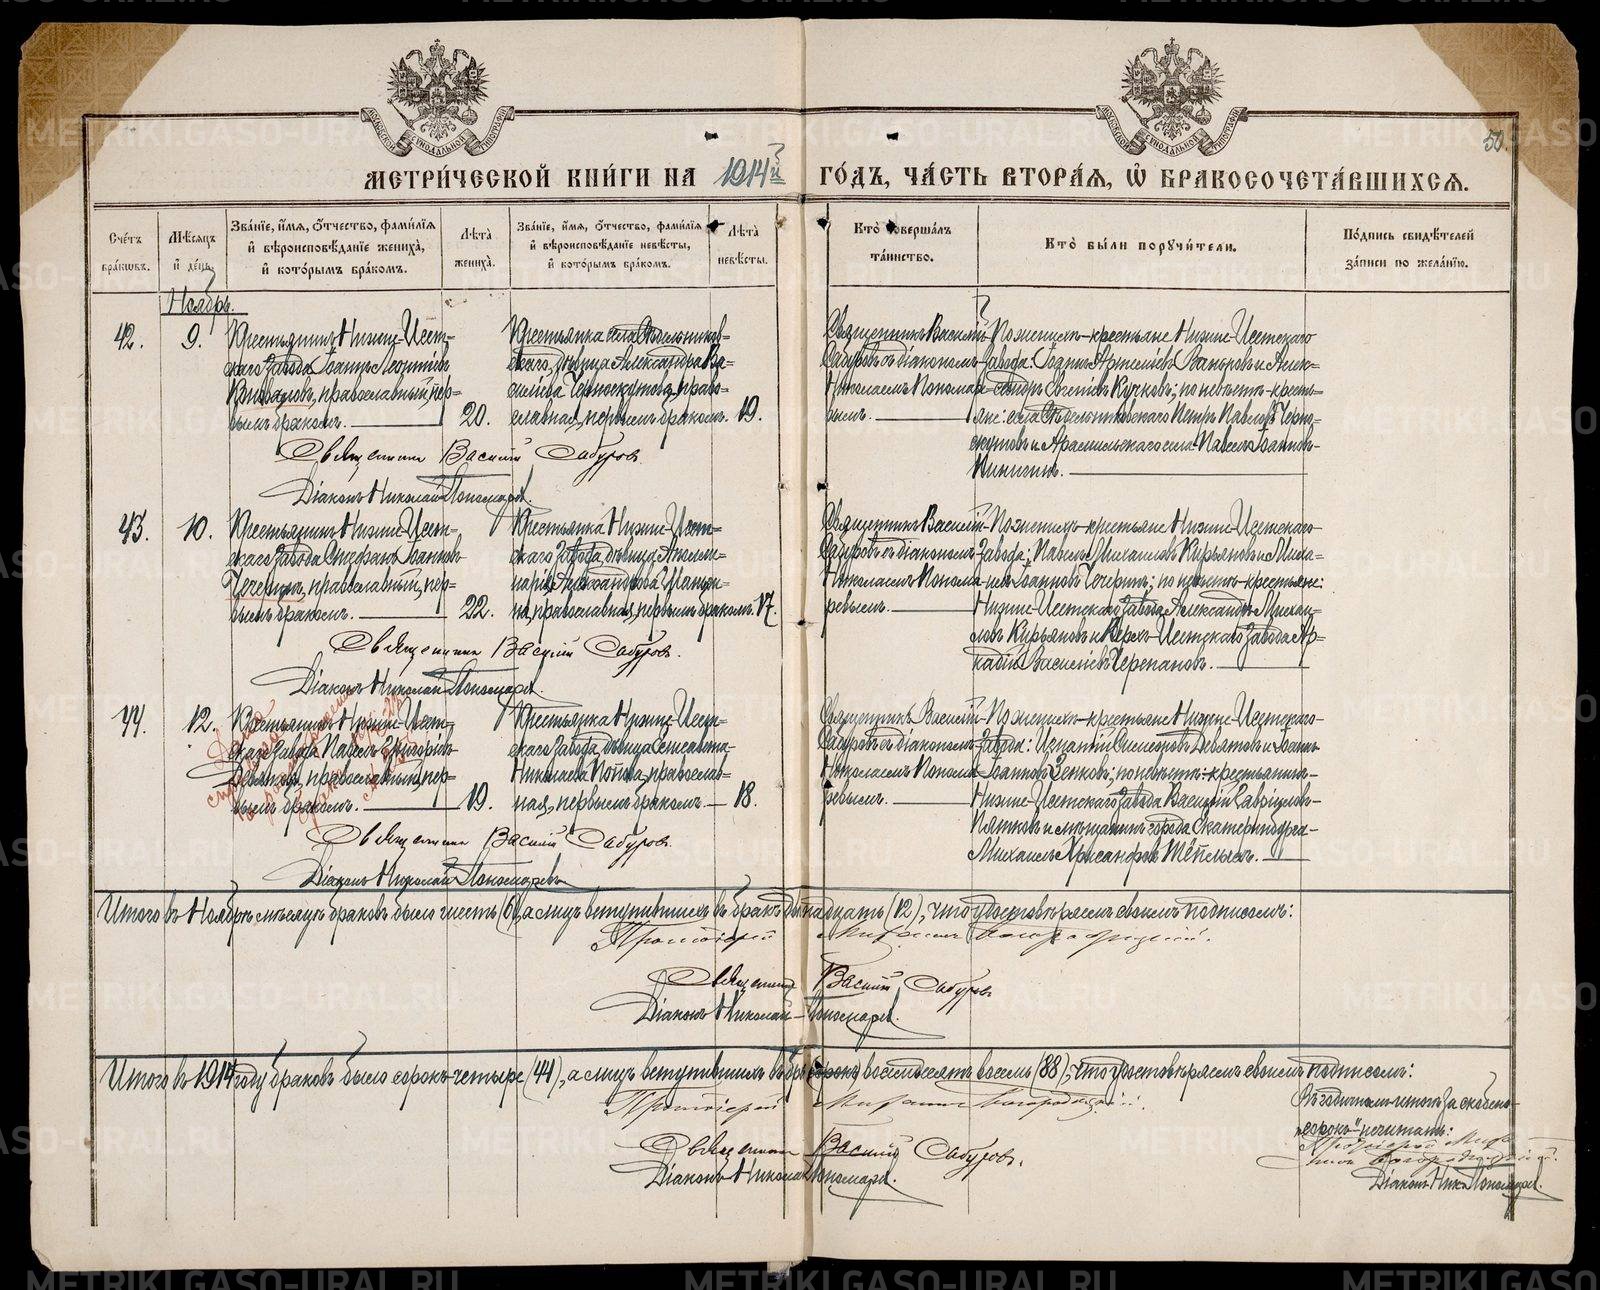 МОСКОВСКОЙ СѴНОДАЛЬНОЙ ТИПОГРАФІИ
МОСКОВСКОЙ СѴНОДАЛЬНОЙ ТИПОГРАФІИ
50.
МЕТРИ́ЧЕСКОЙ КНИ́ГИ НА 1914й ГО́ДЪ, ЧА́СТЬ ВТОРА́Я, Ѡ БРАКОСОЧЕТА́ВШИХСЯ.
Сче́тъ бра́кѡвъ.
Мѣ́сяцъ и҆ де́нь.
Зва́нїе, и҆́мя, ѻ҆́тчество, фами́лїя и҆ вѣроисповѣ́данїе жениха̀, и҆ кото́рымъ бра́комъ.
Лѣ́та жениха̀.
Зва́нїе, и҆́мя, ѻ҆́тчество, фами́лїя и҆ вѣроисповѣ́данїе невѣ́сты, и҆ кото́рымъ бра́комъ.
Лѣ́та невѣ́сты.
Кто̀ соверша́лъ та́инство.
Кто̀ бы́ли поручи́тели.
По́дпись свидѣ́телей за́писи по жела́нїю.
Ноябрь.
42.
9.
Крестьянинъ Нижне-Исет-
скаго завода Іоаннъ Леонтіевъ
православный, пер-
вымъ бракомъ.
20.
Крестьянка села
дѣвица Александра Ва-
сильева Черноскутова, право-
славная, первымъ бракомъ.
19.
Священникъ Василій
Сабуровъ съ діакономъ
Николаемъ Пономаре-
вымъ.
По женихѣ-крестьяне Нижне-Исетскаго
завода: Іоаннъ и Алек-
сандръ по невѣстѣ-кресть-
яне: села Петръ Павловъ Черно-
скутовъ и Арамильскаго села Павелъ Іоанновъ
Священникъ Василій Сабуровъ.
Діаконъ Николай Пономаревъ.
43.
10.
Крестьянинъ Нижне-Исет-
скаго завода Стефанъ Іоанновъ
Чечеринъ, православный, пер-
вымъ бракомъ.
22.
Крестьянка Нижне-Исет-
скаго завода, дѣвица Апполи-
нарія Александрова
православная, первымъ бракомъ.
17.
Священникъ Василій
Сабуровъ съ діакономъ
Николаемъ Понома-
ревымъ.
По женихѣ-крестьяне Нижне-Исетскаго
завода: Павелъ Михаиловъ Курьяновъ и Миха-
илъ Іоанновъ Чечеринъ; по невѣстѣ-крестьяне:
Нижне-Исетскаго завода Александръ Михаи-
ловъ Курьяновъ и Верхъ-Исетскаго завода Ар-
кадій Василіевъ Черепановъ.
Священникъ Василій Сабуровъ.
Діаконъ Николай Пономаревъ.
44.
12.
Крестьянинъ Нижне-Исет-
скаго завода Павелъ
Девятовъ, православный, пер-
вымъ бракомъ.
19.
Крестьянка Нижне-Исет-
скаго завода, дѣвица Елисавета
Николаева Попова, православ-
ная, первымъ бракомъ.
18.
Священникъ Василій
Сабуровъ съ діакономъ
Николаемъ Понома-
ревымъ.
По женихѣ-крестьяне Нижне-Исетскаго
завода: Игнатій Девятовъ и Іоаннъ
Іоанновъ Зенковъ; по невѣстѣ: крестьянинъ
Нижне-Исетскаго завода Василій Гавріиловъ
Пятковъ и мѣщанинъ города Екатеринбурга
Михаилъ Хрисанфовъ Тёплыхъ.
Священникъ Василій Сабуровъ.
Діаконъ Николай Пономаревъ
Итого въ Ноябрѣ мѣсяцѣ браковъ было шесть (6), а лицъ вступившихъ въ бракъ двѣнадцать (12), что удостовѣряемъ своимъ подписомъ:
Протоіерей
Священникъ Василій Сабуровъ
Діаконъ Николай Пономаревъ.
Итого въ 1914 году браковъ было сорокъ-четыре (44), а лицъ вступившихъ въ бракъ восемьдесятъ восемь (88), что удостовѣряемъ своимъ подписомъ:
Протоіерей
Священникъ Василій Сабуровъ.
Діаконъ Николай Пономаревъ.
Въ годичномъ итогѣ за скобен.
„сорокъ" не читать:
Протоіерей
Діаконъ Ник. Пономаревъ.
METRIKI.GASO-URAL.RU